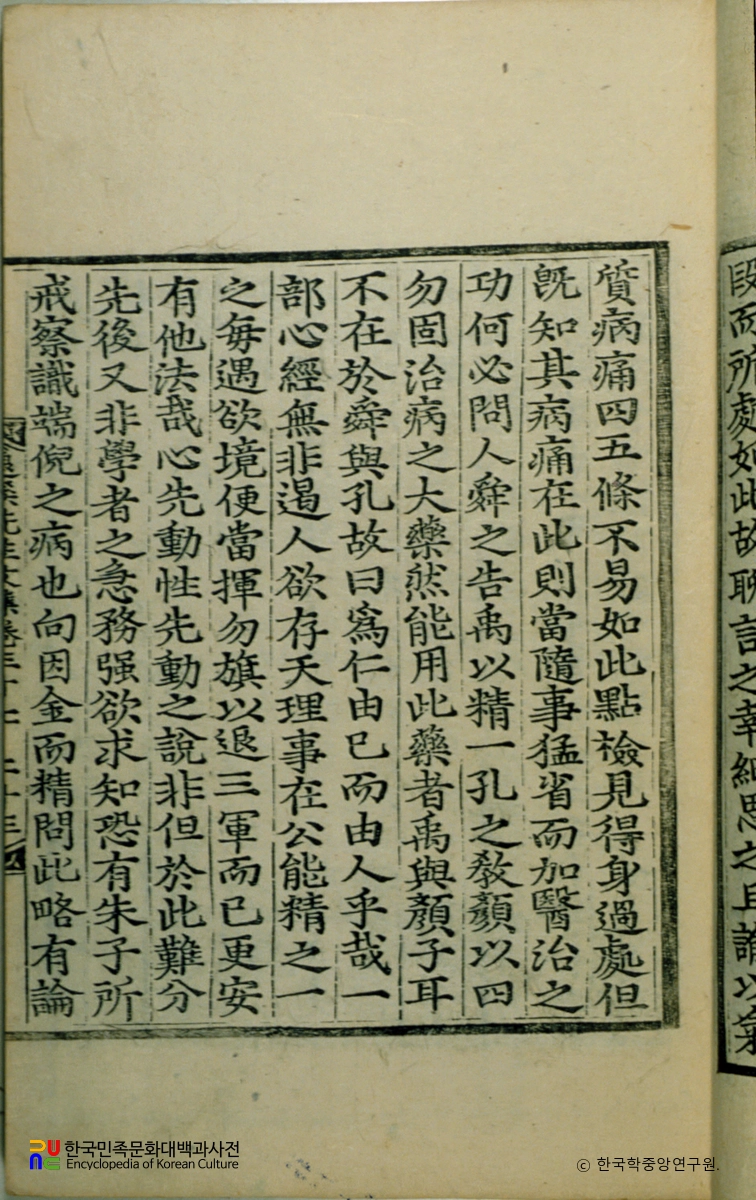 段而所處如此故聊言之幸細思之且謂以氣
質病痛四五條不易如此點檢見得身過處但
旣知其病痛在此則當隨事猛省而加醫治之
功何必問人舜之告禹以精一孔之敎顔以四
勿固治病之大藥然能用此藥者禹與顔子耳
不在於舜與孔故曰爲仁由已而由人乎哉一
部心經無非遏人欲存天理事在公能精之一
之每遇欲境便當揮勿旗以退三軍而已更安
有他法哉心先動性先動之說非但於此難分
先後又非學者之急務强欲求知恐有朱子所
戒察識端倪之病也向因金而精問此略有論
退溪先生文集卷三十七 二十三
한국민족문화대백과사전
Encyclopedia of Korean Culture
ⓒ 한국학중앙연구원.